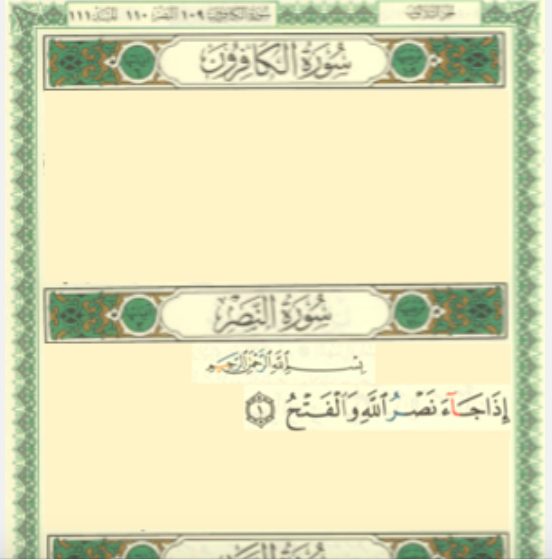 سورة الكافرون ١٠٩ النصر ١١٠ المسد ١١١
الجزء الثلاثون
سُورَةُ الكَافِرُونَ
سُورَةُ النَّصْرِ
بِسْمِ ٱللَّهِ ٱلرَّحْمَٰنِ ٱلرَّحِيمِ
إِذَا جَآءَ نَصْرُ ٱللَّهِ وَٱلْفَتْحُ ١